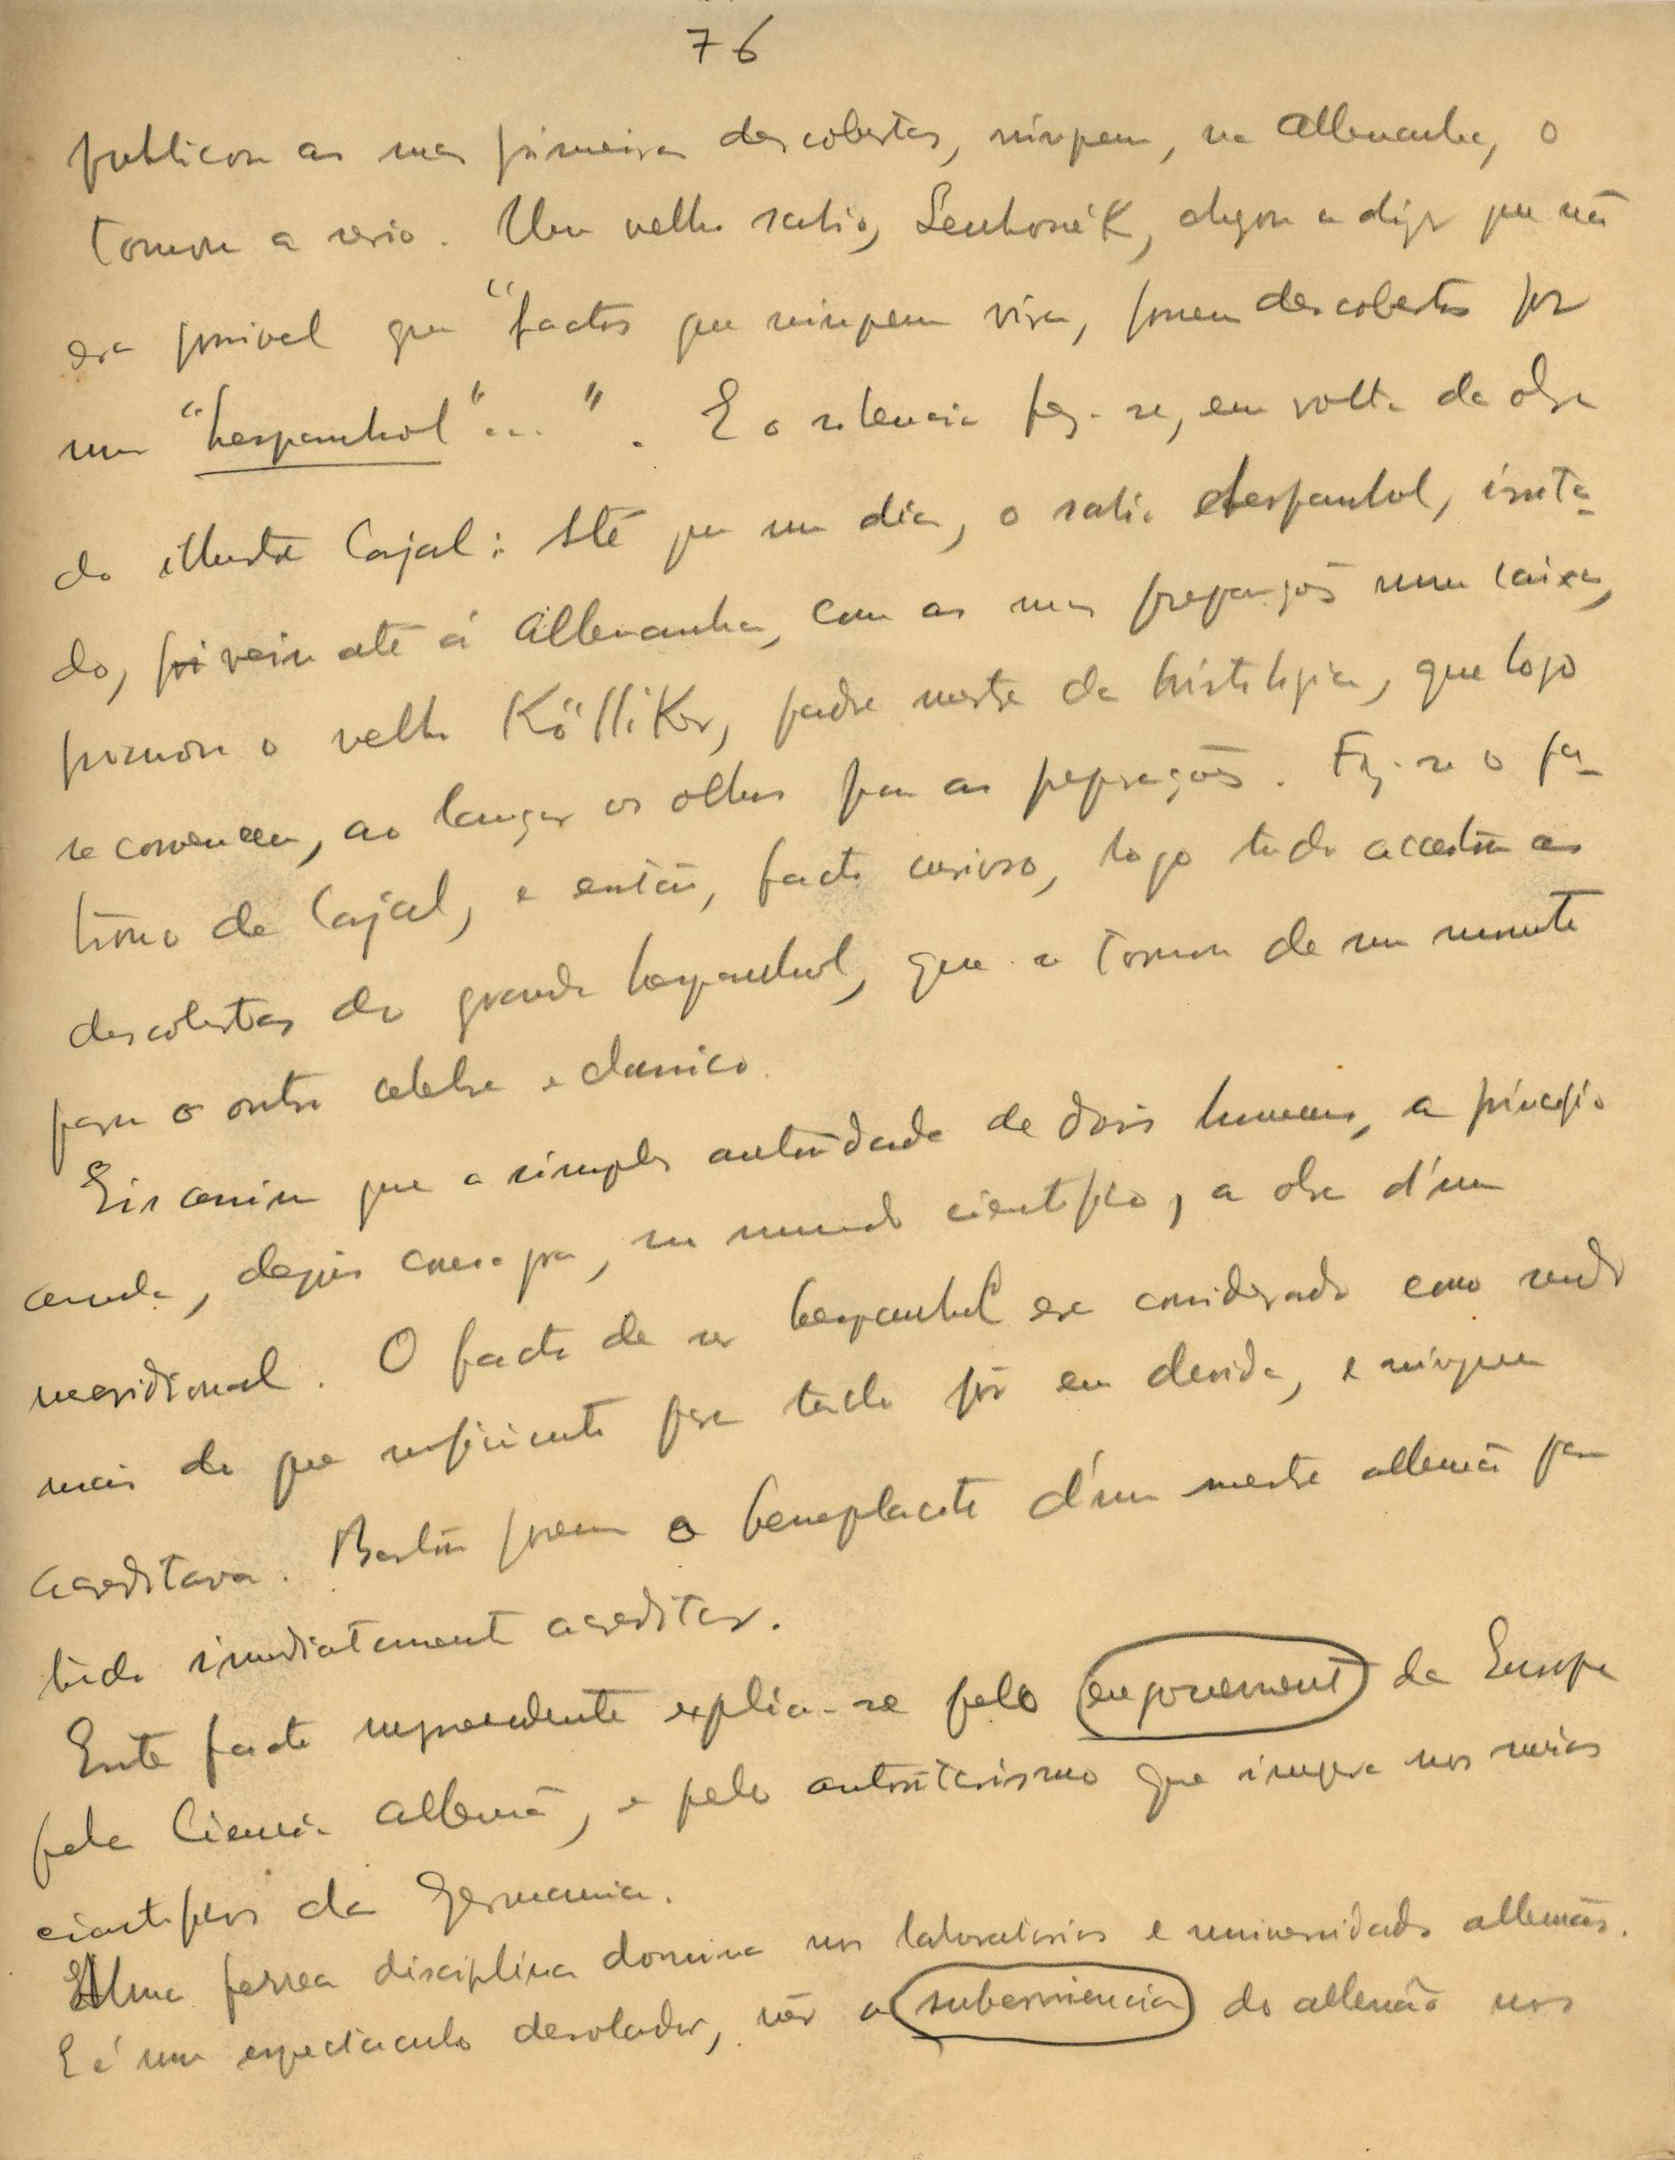 76
publicou as suas primeiras descobertas, ninguem, na Allemanha, o
tomou a serio. Um velho sabio, Lenhossék, chegou a dizer que não
era possivel que "factos que ninguem vira, fossem descobertos por
um "hespanhol"..." . E o silencio fez-se, em volta da obra
do illustre Cajal: Até que um dia, o sabio hespanhol, irrita-
do, foi veiu até á Allemanha, com as suas preparações numa caixa,
procurou o velho Kölliker, padre mestre da histologia, que logo
se convenceu, ao lançar os olhos para as preparações. Fez-se o pa-
trono de Cajal, e então, facto curioso, logo tudo acceitou as
descobertas do grande hespanhol, que se tornou de um minuto
para o outro celebre e classico.
Eis assim que a simples autoridade de dois homens, a principio
annula, depois consagra, no mundo cientifico, a obra d'um
meridional. O facto de ser hespanhol era considerado como sendo
mais do que suficiente para tudo pôr em duvida, e ninguem
acreditava. Bastou porem o beneplacito d'um mestre allemão para
tudo imediatamente acreditar.
Este facto surprehendente explica-se pelo engouement da Europa
pela Ciencia allemã, e pelo autoritarismo que impera nos meios
cientificos da Germania.
Uma ferrea disciplina domina nos laboratorios e universidades allemãs.
E é um espectaculo desolador, vêr a subserviencia do allemão nos